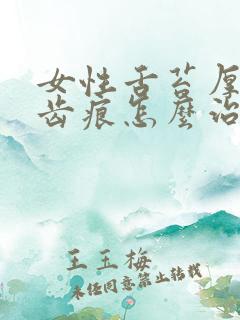 女性舌苔厚
齿痕怎麼治
王玉梅
未经同意禁止转载